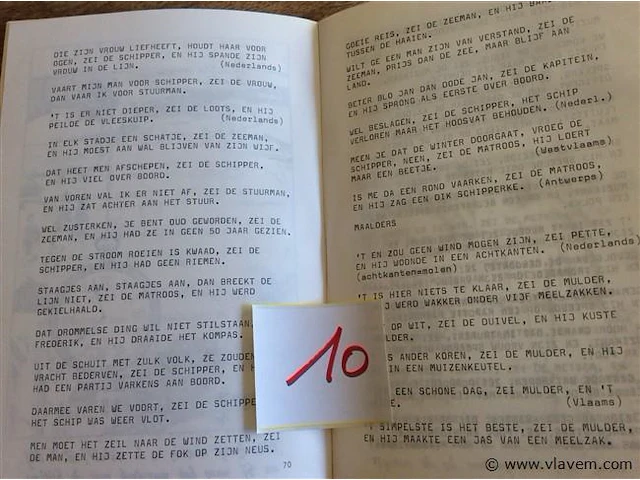 DIE ZIJN VROUW LIEFHEEFT, HOUDT HAAR VOOR
OGEN, ZEI DE SCHIPPER, EN HIJ SPANDE ZIJN
VROUW IN DE LIJN. (Nederlands)
VAART MIJN MAN VOOR SCHIPPER, ZEI DE VROUW,
DAN VAAR IK VOOR STUURMAN.
'T IS ER NIET DIEPER, ZEI DE LOOTS, EN HIJ
PEILDE DE VLEESKUIP. (Nederlands)
IN ELK STADJE EEN SCHATJE, ZEI DE ZEEMAN,
EN HIJ MOEST AAN WAL BLIJVEN VAN ZIJN WIJF.
DAT HEET MEN AFSCHEPEN, ZEI DE SCHIPPER,
EN HIJ VIEL OVER BOORD.
VAN VOREN VAL IK ER NIET AF, ZEI DE STUURMAN,
EN HIJ ZAT ACHTER AAN HET STUUR.
WEL ZUSTERKEN, JE BENT OUD GEWORDEN, ZEI DE
ZEEMAN, EN HIJ HAD ZE IN GEEN 50 JAAR GEZIEN.
TEGEN DE STROOM ROEIEN IS KWAAD, ZEI DE
SCHIPPER, EN HIJ HAD GEEN RIEMEN.
STAAGJES AAN, STAAGJES AAN, DAN BREEKT DE
LIJN NIET, ZEI DE MATROOS, EN HIJ WERD
GEKIELHAALD.
DAT DROMMELSE DING WIL NIET STILSTAAN,
FREDERIK, EN HIJ DRAAIDE HET KOMPAS.
UIT DE SCHUIT MET ZULK VOLK, ZE ZOUDEN
VRACHT BEDERVEN, ZEI DE SCHIPPER, EN H
HAD EEN PARTIJ VARKENS AAN BOORD.
DAARMEE VAREN WE VOORT, ZEI DE SCHIPPE
HET SCHIP WAS WEER VLOT.
MEN MOET HET ZEIL NAAR DE WIND ZETTEN, ZEI
DE MAN, EN HIJ ZETTE DE FOK OP ZIJN NEUS.
70
GOEIE REIS, ZEI DE ZEEMAN, EN HIJ
TUSSEN DE HAAIEN.
WILT GE EEN MAN ZIJN VAN VERSTAND, ZEI DE
ZEEMAN, PRIJS DAN DE ZEE, MAAR BLIJF AAN
LAND.
BETER BLO JAN DAN DODE JAN, ZEI DE KAPITEIN,
EN HIJ SPRONG ALS EERSTE OVER BOORD.
WEL BESLAGEN, ZEI DE SCHIPPER, HET SCHIP
VERLOREN MAAR HET HOOSVAT BEHOUDEN. (Nederl.)
MEEN JE DAT DE WINTER DOORGAAT, VROEG DE
SCHIPPER, NEEN, ZEI DE MATROOS, HIJ LOERT
MAAR EEN BEETJE. (Westvlaams)
IS ME DA EEN ROND VAARKEN, ZEI DE MATROOS,
EN HIJ ZAG EEN DIK SCHIPPERKE. (Antwerps)
MAALDERS
'T EN ZOU GEEN WIND MOGEN ZIJN, ZEI PETTE,
EN HIJ WOONDE IN EEN ACHTKANTEN. (Nederlands)
(achtkantenmolen)
'T IS HIER NIETS TE KLAAR, ZEI DE MULDER,
WERD WAKKER ONDER VIJF MEELZAKKEN.
OP WIT, ZEI DE DUIVEL, EN HIJ KUSTE
LDER.
S ANDER KOREN, ZEI DE MULDER, EN HIJ
IN EEN MUIZENKEUTEL.
EEN SCHONE DAG, ZEI MULDER, EN 'T
E. (Vlaams)
'T SIMPELSTE IS HET BESTE, ZEI DE MULDER,
EN HIJ MAAKTE EEN JAS VAN EEN MEELZAK.
10
© www.vlavem.com